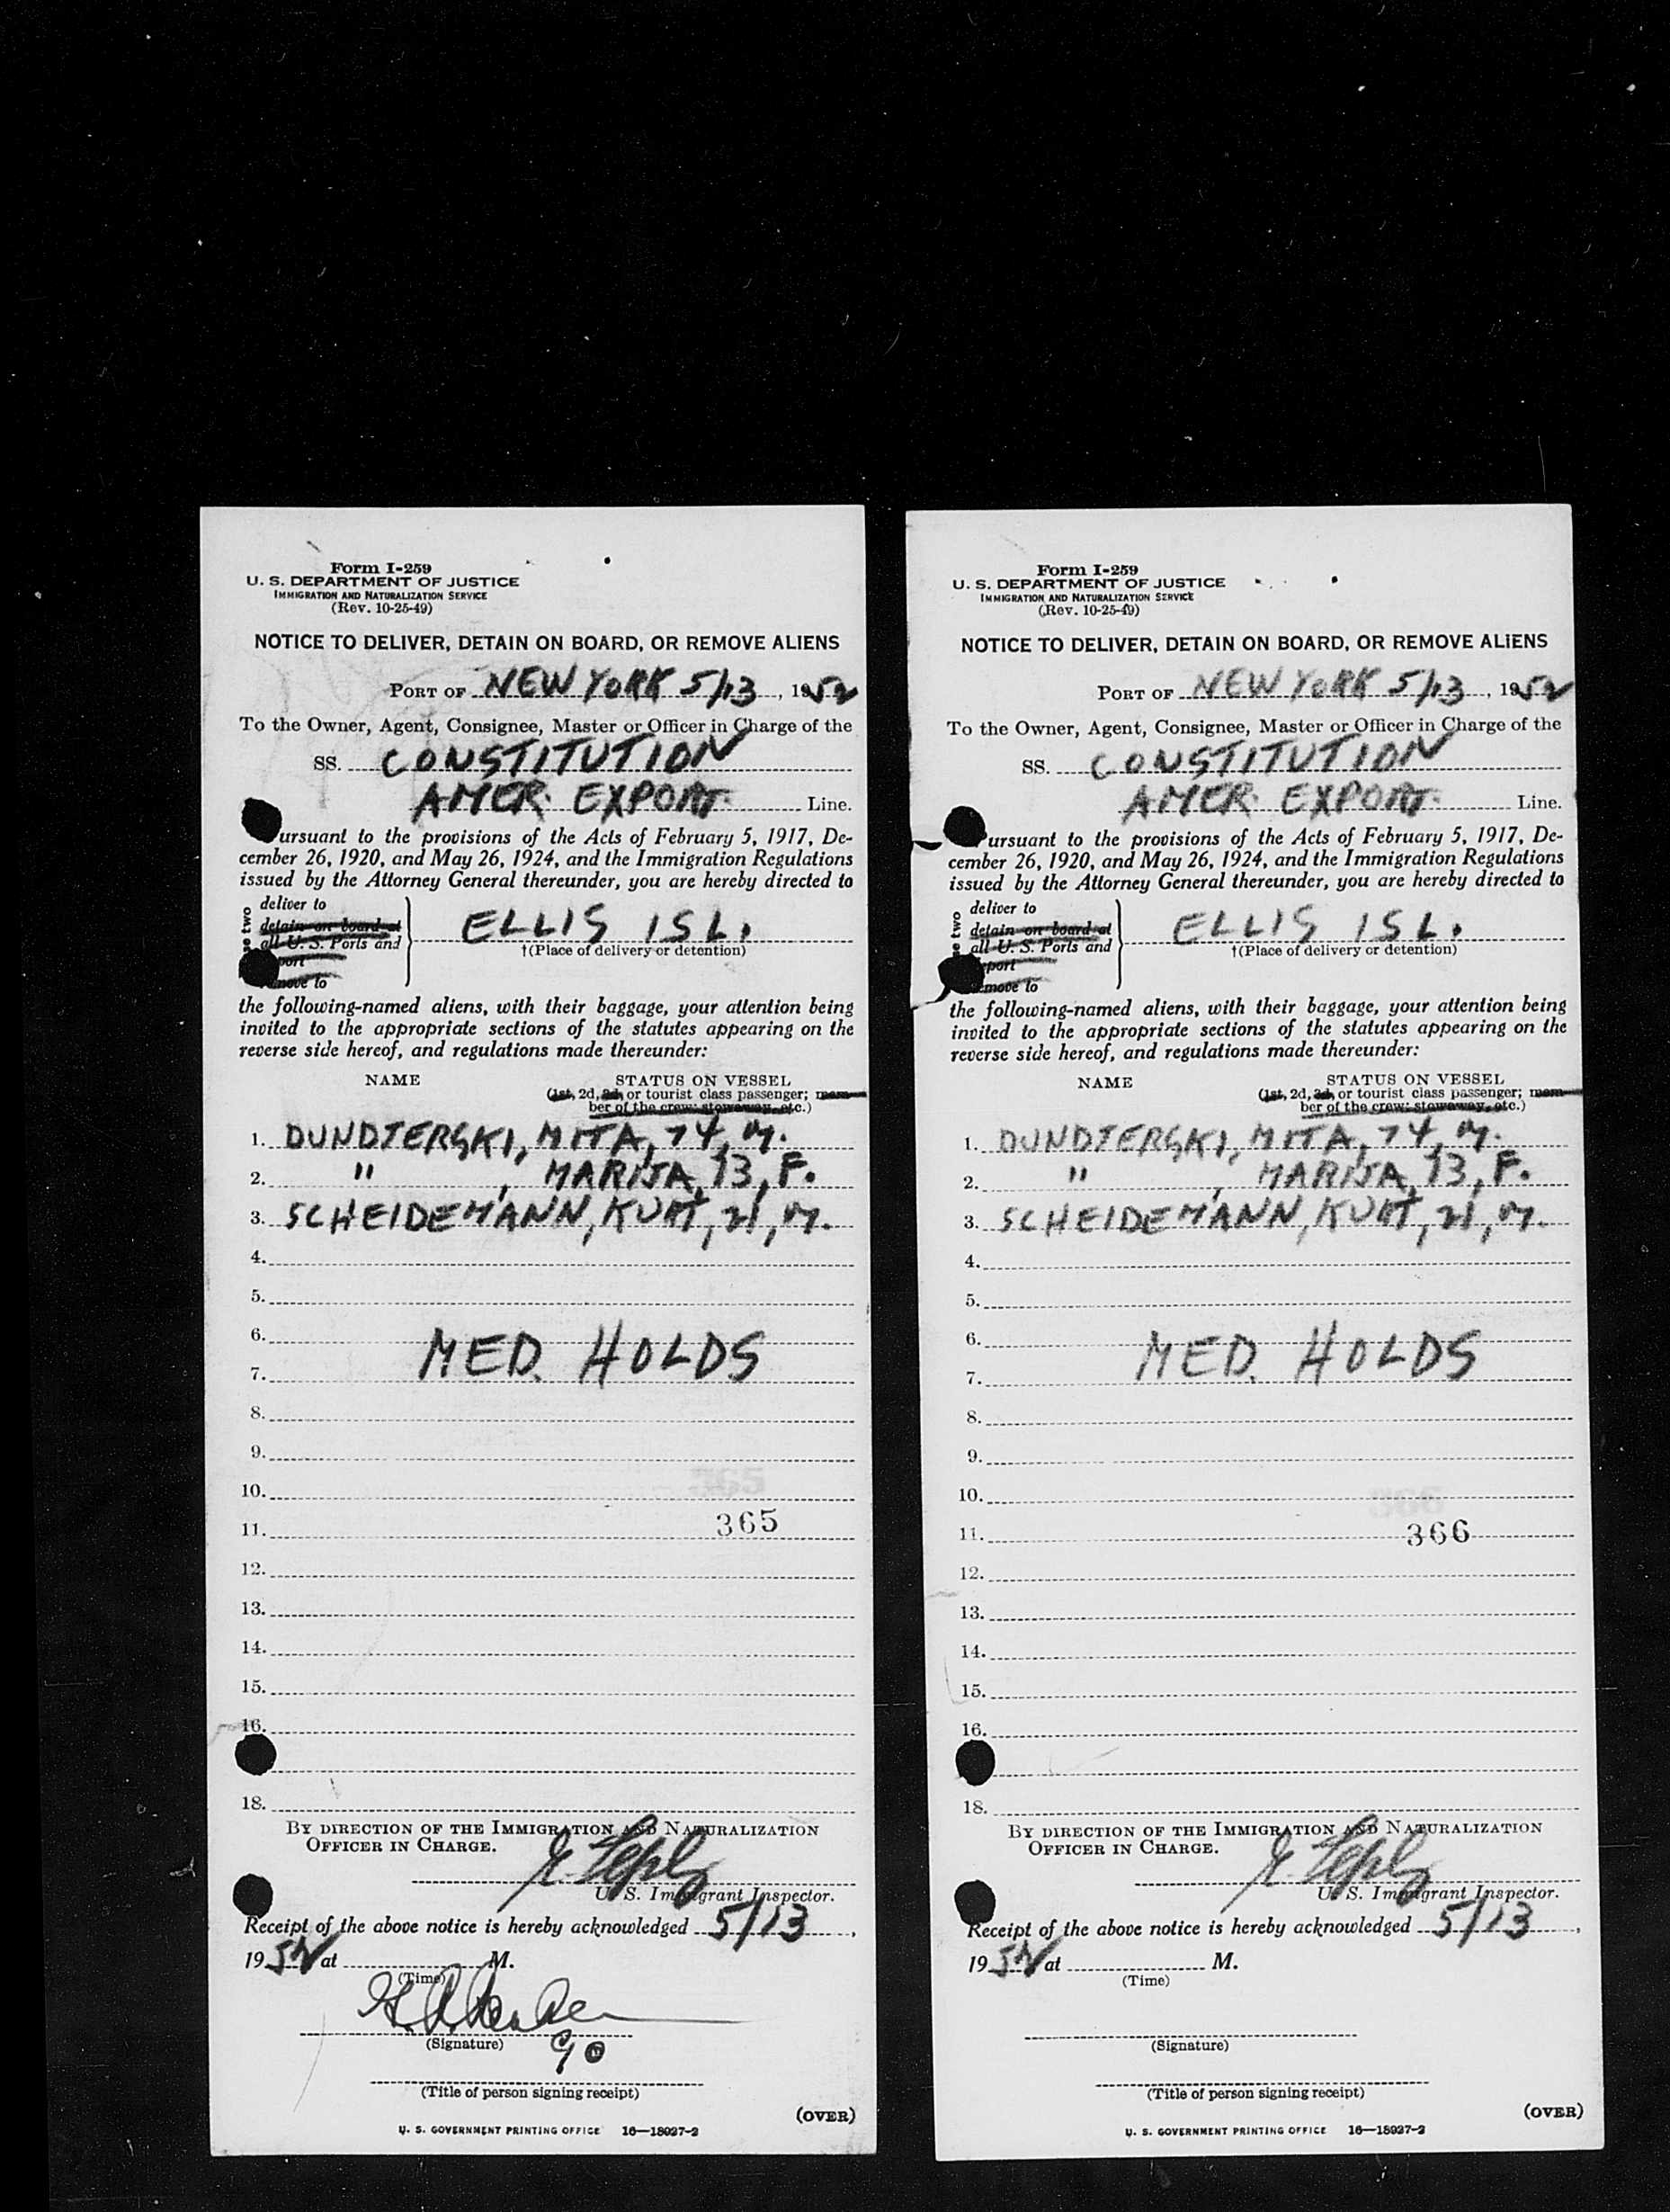 Form I-259
U. S. DEPARTMENT OF JUSTICE
IMMIGRATION AND NATURALIZATION SERVICE
(Rev. 10-25-49)
NOTICE TO DELIVER, DETAIN ON BOARD, OR REMOVE ALIENS
PORT OF NEW YORK 5/13, 1952
To the Owner, Agent, Consignee, Master or Officer in Charge of the
SS. CONSTITUTION
AMER. EXPORT. Line.
ursuant to the provisions of the Acts of February 5, 1917, De-
cember 26, 1920, and May 26, 1924, and the Immigration Regulations
issued by the Attorney General thereunder, you are hereby directed to
deliver to
detain on board at
all U. S. Ports and
port
move to
two
ELLIS ISL.
†(Place of delivery or detention)
the following-named aliens, with their baggage, your attention being
invited to the appropriate sections of the statutes appearing on the
reverse side hereof, and regulations made thereunder:
NAME
STATUS ON VESSEL
(1st, 2d, 3d, or tourist class passenger; mem-
ber of the crew; stowaway, etc.)
1. DUNDJERSKI, MITA, 74, M.
2. " , MARIJA, 73, F.
3. SCHEIDEMANN, KURT, 21, M.
4.
5.
6.
MED. HOLDS
7.
8.
9.
10.
365
11.
12.
13.
14.
15.
16.
18.
BY DIRECTION OF THE IMMIGRATION AND NATURALIZATION
OFFICER IN CHARGE.
U. S. Immigrant Inspector.
Receipt of the above notice is hereby acknowledged 5/13,
1952 at M.
(Time)
(Signature)
(Title of person signing receipt)
(OVER)
U. S. GOVERNMENT PRINTING OFFICE 16—18027-2
Form I-259
U. S. DEPARTMENT OF JUSTICE
IMMIGRATION AND NATURALIZATION SERVICE
(Rev. 10-25-49)
NOTICE TO DELIVER, DETAIN ON BOARD, OR REMOVE ALIENS
PORT OF NEW YORK 5/13, 1952
To the Owner, Agent, Consignee, Master or Officer in Charge of the
SS. CONSTITUTION
AMER. EXPORT. Line.
ursuant to the provisions of the Acts of February 5, 1917, De-
cember 26, 1920, and May 26, 1924, and the Immigration Regulations
issued by the Attorney General thereunder, you are hereby directed to
deliver to
detain on board at
all U. S. Ports and
port
move to
two
ELLIS ISL.
†(Place of delivery or detention)
the following-named aliens, with their baggage, your attention being
invited to the appropriate sections of the statutes appearing on the
reverse side hereof, and regulations made thereunder:
NAME
STATUS ON VESSEL
(1st, 2d, 3d, or tourist class passenger; mem-
ber of the crew; stowaway, etc.)
1. DUNDJERSKI, MITA, 74, M.
2. " , MARIJA, 73, F.
3. SCHEIDEMANN, KURT, 21, M.
4.
5.
6.
MED. HOLDS
7.
8.
9.
10.
366
11.
12.
13.
14.
15.
16.
18.
BY DIRECTION OF THE IMMIGRATION AND NATURALIZATION
OFFICER IN CHARGE.
U. S. Immigrant Inspector.
Receipt of the above notice is hereby acknowledged 5/13,
1952 at M.
(Time)
(Signature)
(Title of person signing receipt)
(OVER)
U. S. GOVERNMENT PRINTING OFFICE 16—18027-2